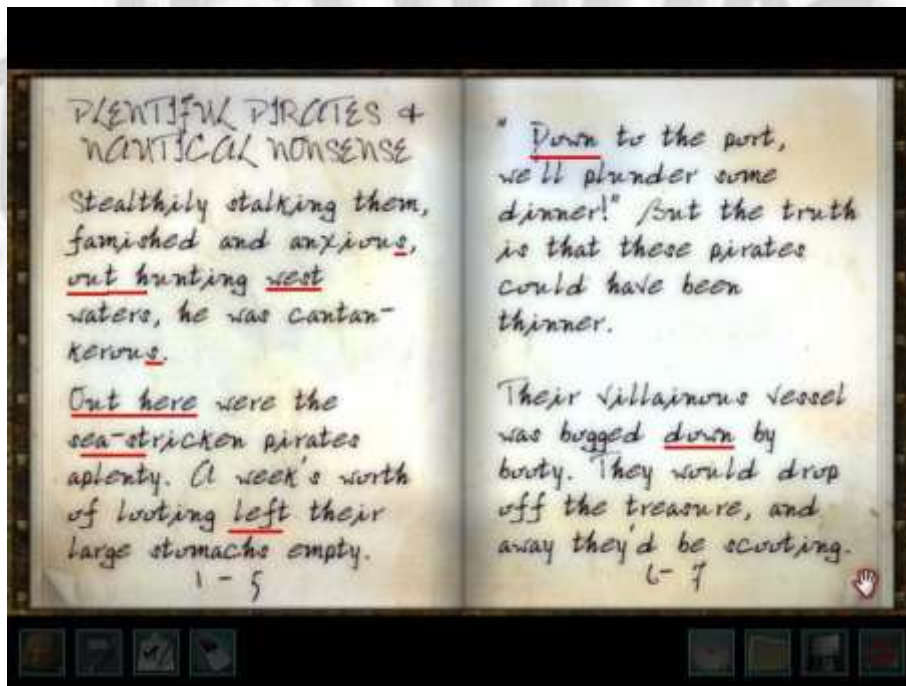 PLENTIFUL PIRATES &
NAUTICAL NONSENSE
Stealthily stalking them,
famished and anxious,
out hunting west
waters, he was cantan-
kerous.
Out here were the
sea-stricken pirates
aplenty. A week's worth
of looting left their
large stomachs empty.
1 - 5
"Down to the port,
we'll plunder some
dinner!" But the truth
is that these pirates
could have been
thinner.
Their villainous vessel
was bogged down by
booty. They would drop
off the treasure, and
away they'd be scooting.
6- 7